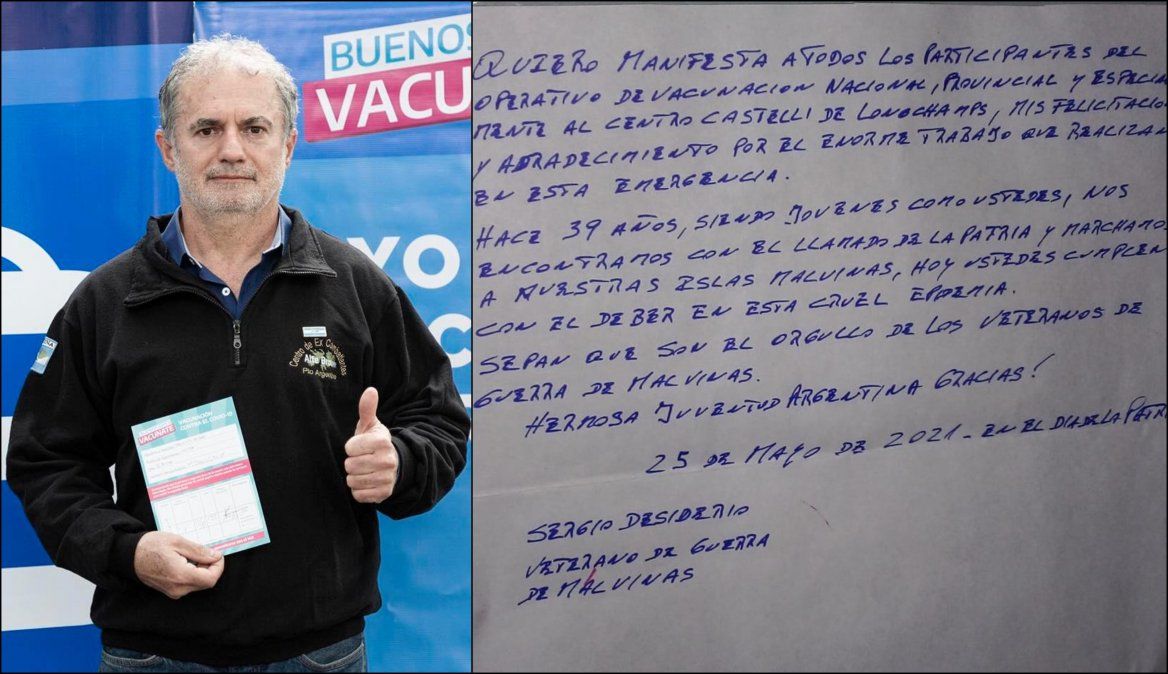 BUENOS
VACU
YO
C
Centro de Ex Combatientes
Alte Brown
Pto Argentino
VACUNATE
VACUNACIÓN
CONTRA EL COVID-19
QUIERO MANIFESTA A TODOS LOS PARTICIPANTES DEL
OPERATIVO DE VACUNACION NACIONAL, PROVINCIAL Y ESPECIAL
MENTE AL CENTRO CASTELLI DE LONGCHAMPS, MIS FELICITACIO
Y AGRADECIMIENTO POR EL ENORME TRABAJO QUE REALIZAN
EN ESTA EMERGENCIA.
HACE 39 AÑOS, SIENDO JOVENES COMO USTEDES, NOS
ENCONTRAMOS CON EL LLAMADO DE LA PATRIA Y MARCHAMOS
A NUESTRAS ISLAS MALVINAS, HOY USTEDES CUMPLEN
CON EL DEBER EN ESTA CRUEL EPDEMIA.
SEPAN QUE SON EL ORGULLO DE LOS VETERANOS DE
GUERRA DE MALVINAS.
HERMOSA JUVENTUD ARGENTINA GRACIAS!
25 DE MAYO DE 2021 - EN EL DIA DE LA PATRI
SERGIO DESIDERIO
VETERANO DE GUERRA
DE MALVINAS